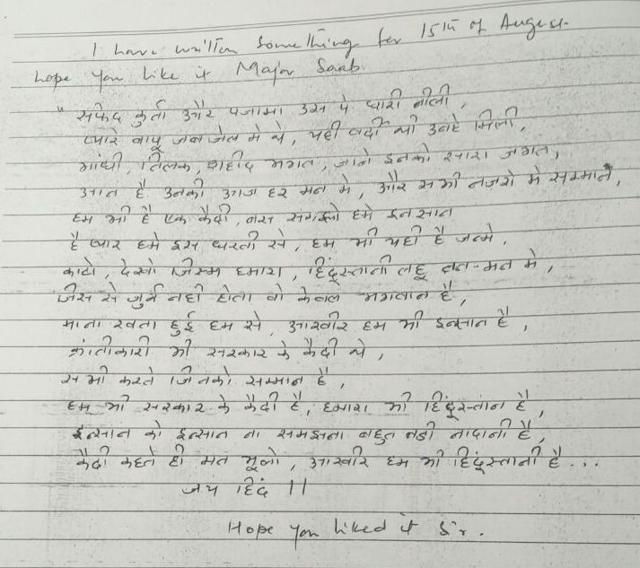 I have written something for 15th of August.
hope you like it Major Saab.
" सफेद कुर्ता और पजामा उस पे धारी नीली,
प्यारे बापू जब जेल मे थे, यही वर्दी थी उन्हे मिली,
गांधी, तिलक, शहीद भगत, जाने इनको सारा जगत,
आन है उनकी आज हर मन मे, और सभी नजरो मे सम्मान,
हम भी है एक कैदी, बस समझो हमे इनसान
है प्यार हमे इस धरती से, हम भी यही है जन्मे,
काटो, देखो जिस्म हमारा, हिंदूस्तानी लहू तन-मन मे,
जिस से जुर्म नही होता वो केवल भगवान है,
माना खता हुई हम से, आखीर हम भी इन्सान है,
क्रांतीकारी भी सरकार के कैदी थे,
सभी करते जिनको सम्मान है,
हम भी सरकार के कैदी है, हमारा भी हिंदूस्तान है,
इन्सान को इन्सान ना समझना बहुत बडी नादानी है,
कैदी कहते ही मत भूलो, आखीर हम भी हिंदूस्तानी है...
जय हिंद ||
Hope you liked it Sir.